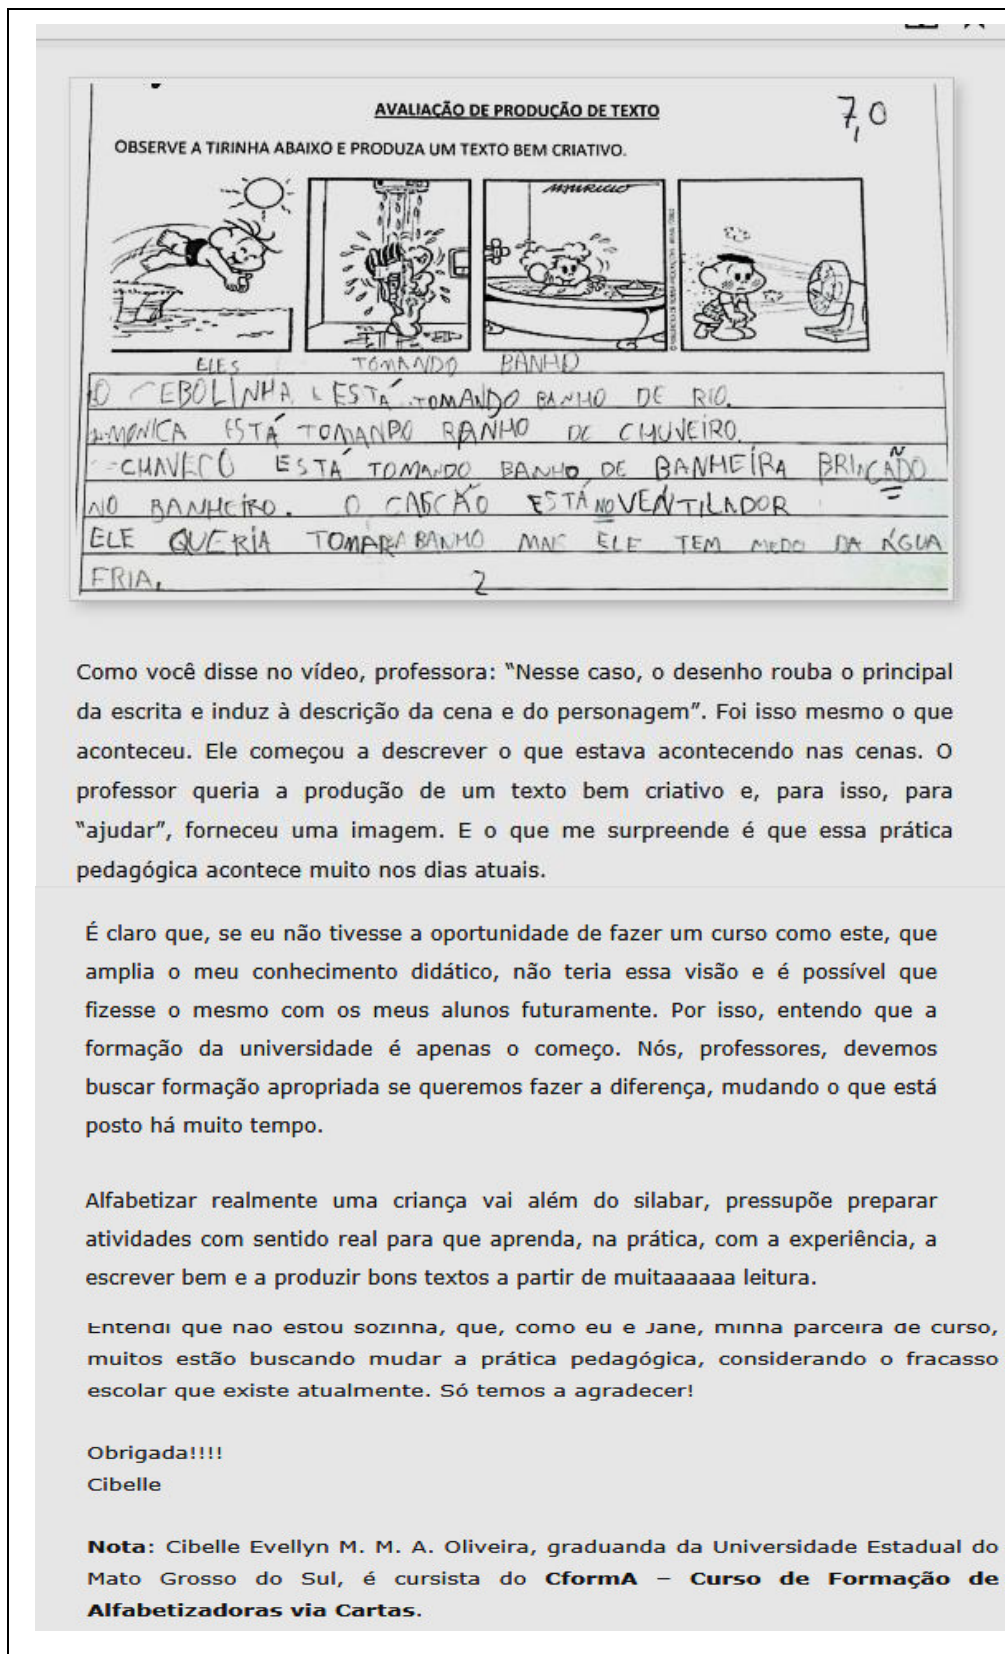 AVALIAÇÃO DE PRODUÇÃO DE TEXTO
7,0
OBSERVE A TIRINHA ABAIXO E PRODUZA UM TEXTO BEM CRIATIVO.
MAURICIO
ELES TOMANDO BANHO
O CEBOLINHA ESTÁ TOMANDO BANHO DE RIO.
MONICA ESTÁ TOMANDO BANHO DE CHUVEIRO.
CHAVECO ESTÁ TOMANDO BANHO DE BANHEIRA BRINCADO
NO BANHEIRO. O CASCÃO ESTÁ NO VENTILADOR
ELE QUERIA TOMARA BANHO MAS ELE TEM MEDO DA ÁGUA
FRIA.
2
Como você disse no vídeo, professora: “Nesse caso, o desenho rouba o principal
da escrita e induz à descrição da cena e do personagem”. Foi isso mesmo o que
aconteceu. Ele começou a descrever o que estava acontecendo nas cenas. O
professor queria a produção de um texto bem criativo e, para isso, para
“ajudar”, forneceu uma imagem. E o que me surpreende é que essa prática
pedagógica acontece muito nos dias atuais.
É claro que, se eu não tivesse a oportunidade de fazer um curso como este, que
amplia o meu conhecimento didático, não teria essa visão e é possível que
fizesse o mesmo com os meus alunos futuramente. Por isso, entendo que a
formação da universidade é apenas o começo. Nós, professores, devemos
buscar formação apropriada se queremos fazer a diferença, mudando o que está
posto há muito tempo.
Alfabetizar realmente uma criança vai além do silabar, pressupõe preparar
atividades com sentido real para que aprenda, na prática, com a experiência, a
escrever bem e a produzir bons textos a partir de muitaaaaaa leitura.
Entendi que não estou sozinha, que, como eu e Jane, minha parceira de curso,
muitos estão buscando mudar a prática pedagógica, considerando o fracasso
escolar que existe atualmente. Só temos a agradecer!
Obrigada!!!!
Cibelle
Nota: Cibelle Evellyn M. M. A. Oliveira, graduanda da Universidade Estadual do
Mato Grosso do Sul, é cursista do CformA – Curso de Formação de
Alfabetizadoras via Cartas.